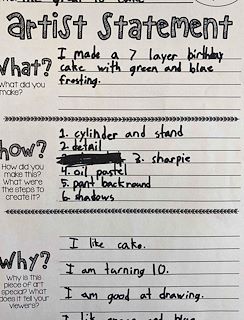 Artist Statement
What?
What did you make?
I made a 7 layer birthday
cake with green and blue
frosting.
how?
How did you
make this?
What were
the steps to
create it?
1. cylinder and stand
2. detail
3. sharpie
4. oil pastel
5. pant backround
6. shadows
Why?
Why is this
piece of art
special? What
does it tell your
viewers?
I like cake.
I am turning 10.
I am good at drawing.
I like green and blue